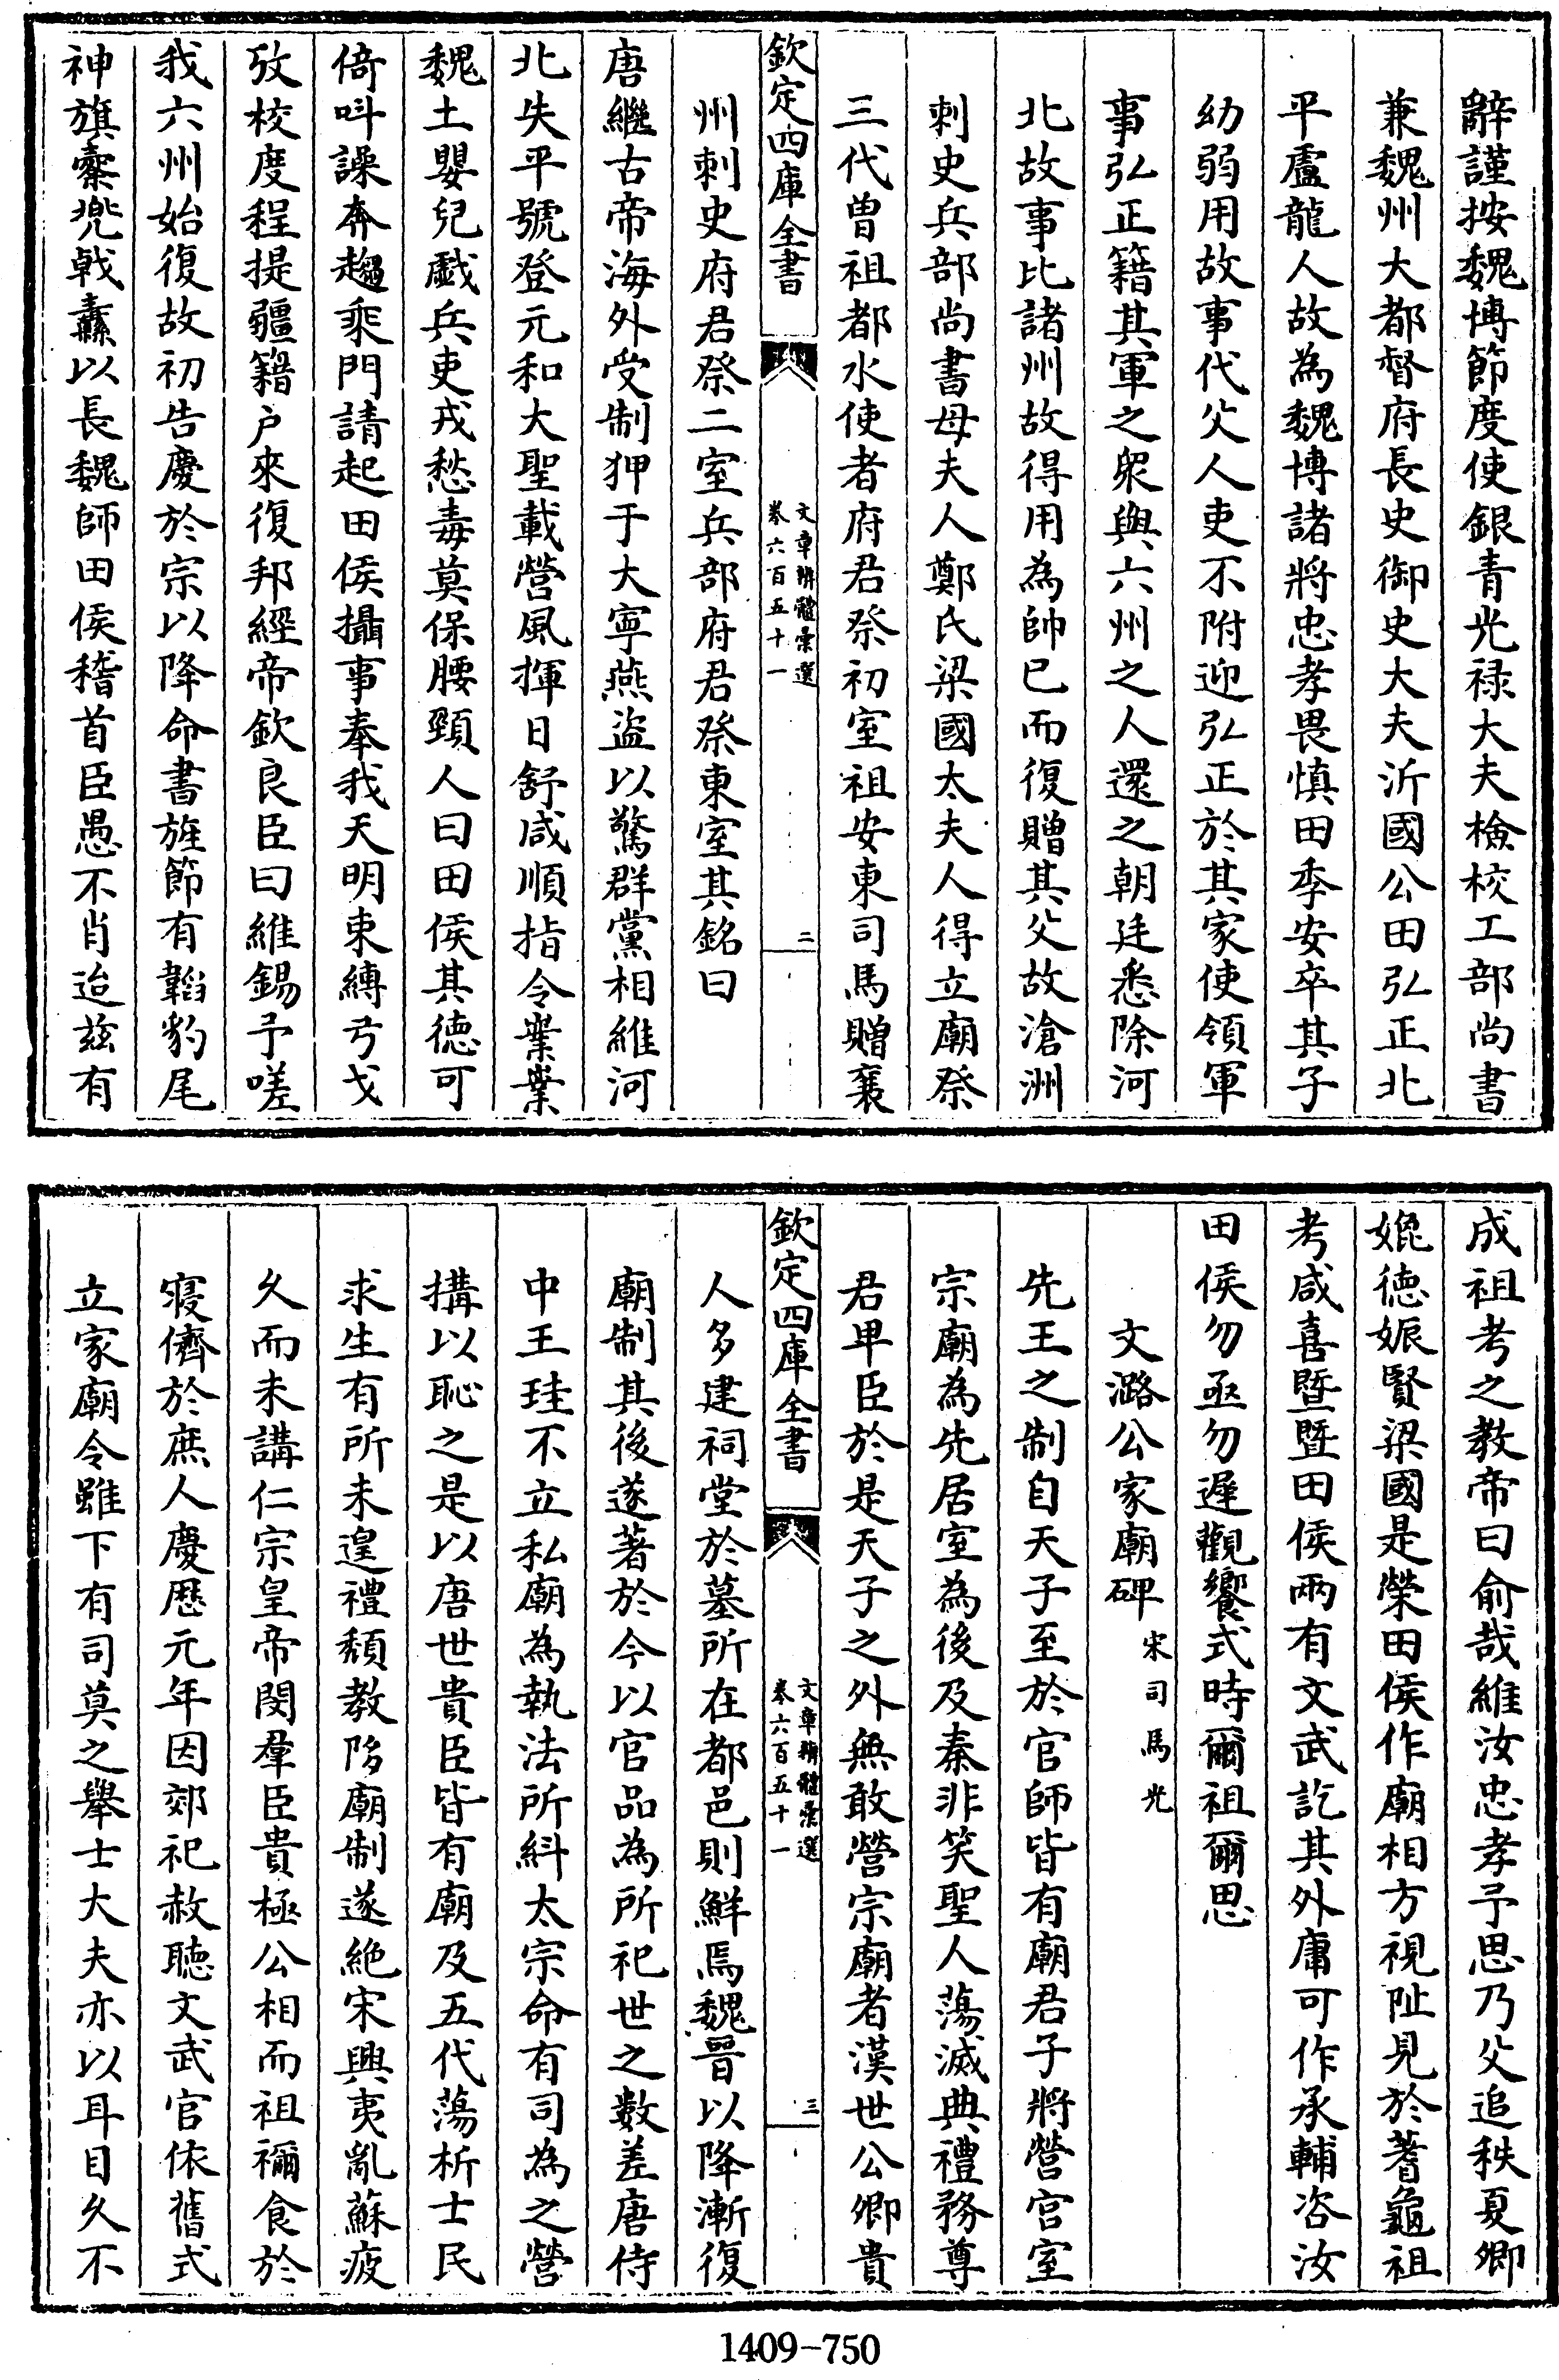 辭謹按魏博節度使銀青光禄大夫檢校工部尚書
兼魏州大都督府長史御史大夫沂國公田弘正北
平盧龍人故為魏博諸將忠孝畏慎田季安卒其子
幼弱用故事代父人吏不附迎弘正於其家使領軍
事弘正籍其軍之衆與六州之人還之朝廷悉除河
北故事比諸州故得用為帥已而復贈其父故滄洲
刺史兵部尚書母夫人鄭氏梁國太夫人得立廟祭
三代曾祖都水使者府君祭初室祖安東司馬贈襄
欽定四庫全書
文章辨體彙選
卷六百五十一
二
州刺史府君祭二室兵部府君祭東室其銘曰
唐繼古帝海外受制狎于大寧燕盜以驚群黨相維河
北失平號登元和大聖載營風揮日舒咸順指令業業
魏土嬰兒戲兵吏戎愁毒莫保腰頸人曰田侯其德可
倚呌譟奔趨乘門請起田侯攝事奉我天明束縳弓戈
攷校度程提疆籍户來復邦經帝欽良臣曰維錫予嗟
我六州始復故初告慶於宗以降命書旌節有韜豹尾
神旗櫜兜戟纛以長魏師田侯稽首臣愚不肖迨兹有
成祖考之教帝曰俞哉維汝忠孝予思乃父追秩夏卿
媲德娠賢梁國是榮田侯作廟相方視阯見於蓍龜祖
考咸喜暨暨田侯兩有文武訖其外庸可作承輔咨汝
田侯勿亟勿遲觀饗式時爾祖爾思
文潞公家廟碑 宋司馬光
先王之制自天子至於官師皆有廟君子將營宫室
宗廟為先居室為後及秦非笑聖人蕩滅典禮務尊
君卑臣於是天子之外無敢營宗廟者漢世公卿貴
欽定四庫全書
文章辨體彙選
卷六百五十一
三
人多建祠堂於墓所在都邑則鮮焉魏晉以降漸復
廟制其後遂著於今以官品為所祀世之數差唐侍
中王珪不立私廟為執法所糾太宗命有司為之營
搆以恥之是以唐世貴臣皆有廟及五代蕩析士民
求生有所未遑禮頹教陊廟制遂絶宋興夷亂蘇疲
久而未講仁宗皇帝閔羣臣貴極公相而祖禰食於
寢儕於庶人慶厯元年因郊祀赦聽文武官依舊式
立家廟令雖下有司莫之舉士大夫亦以耳目久不
1409-750